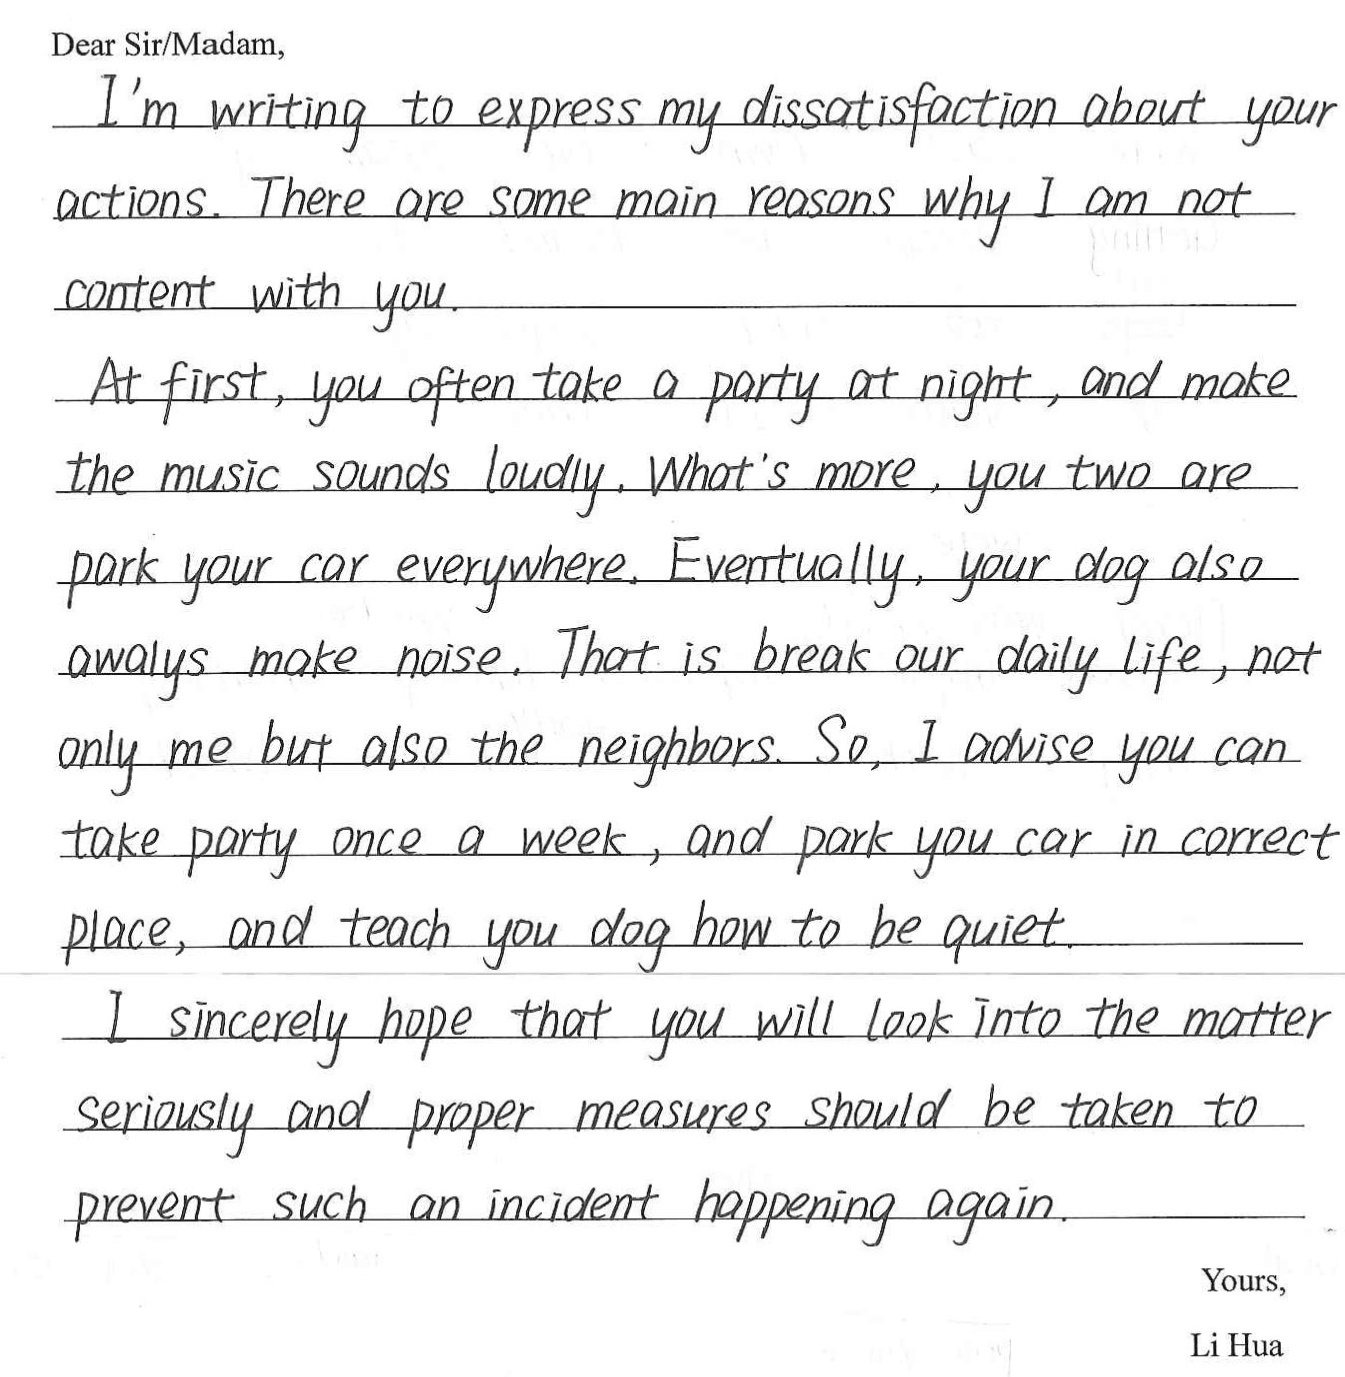 Dear Sir/Madam,
I'm writing to express my dissatisfaction about your
actions. There are some main reasons why I am not
content with you.
At first, you often take a party at night, and make
the music sounds loudly. What's more, you two are
park your car everywhere. Eventually, your dog also
awalys make noise. That is break our daily life, not
only me but also the neighbors. So, I advise you can
take party once a week, and park you car in correct
place, and teach you dog how to be quiet.
I sincerely hope that you will look into the matter
seriously and proper measures should be taken to
prevent such an incident happening again.
Yours,
Li Hua